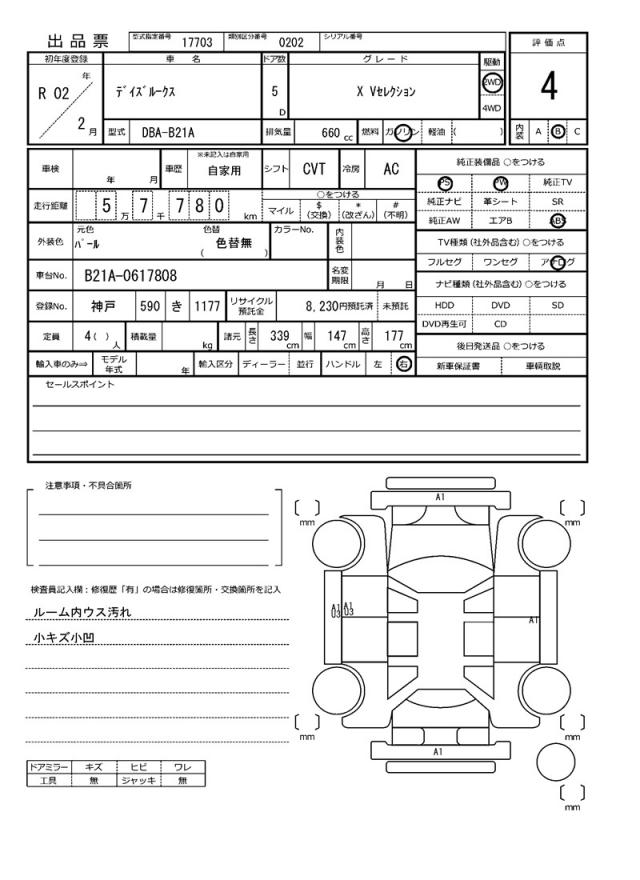 出品票 型式指定番号 17703 類別区分番号 0202 シリアル番号
評価点
4
内装 A B C
初年度登録 車名 ドア数 グレード 駆動
R 02 年 2 月
ﾃﾞｲｽﾞﾙｰｸｽ 5 D X Vｾﾚｸｼｮﾝ 2WD 4WD
型式 DBA-B21A 排気量 660 cc 燃料 ガソリン 軽油 ( )
車検 年 月 車歴 ※未記入は自家用 自家用 シフト CVT 冷房 AC
走行距離 5 万 7 千 7 8 0 km
○をつける
マイル $(交換) *(改ざん) #(不明)
外装色 元色 ﾊﾟｰﾙ 色替 ( 色替無 ) カラーNo. 内装色
車台No. B21A-0617808 名変期限 月 日
登録No. 神戸 590 き 1177 リサイクル預託金 8,230円預託済 未預託
定員 4( ) 人 積載量 kg 諸元 長さ 339 cm 幅 147 cm 高さ 177 cm
輸入車のみ⇒ モデル年式 年 輸入区分 ディーラー 並行 ハンドル 左 右
純正装備品 ○をつける
PS PW 純正TV
純正ナビ 革シート SR
純正AW エアB ABS
TV種類 (社外品含む) ○をつける
フルセグ ワンセグ アナログ
ナビ種類 (社外品含む) ○をつける
HDD DVD SD
DVD再生可 CD
後日発送品 ○をつける
新車保証書 車輌取説
セールスポイント
注意事項・不具合箇所
検査員記入欄：修復歴「有」の場合は修復箇所・交換箇所を記入
ルーム内ウス汚れ
小キズ小凹
ドアミラー キズ ヒビ ワレ
工具 無 ジャッキ 無
A1
mm
mm
A1
U3
A1
U3
A1
mm
mm
A1
mm